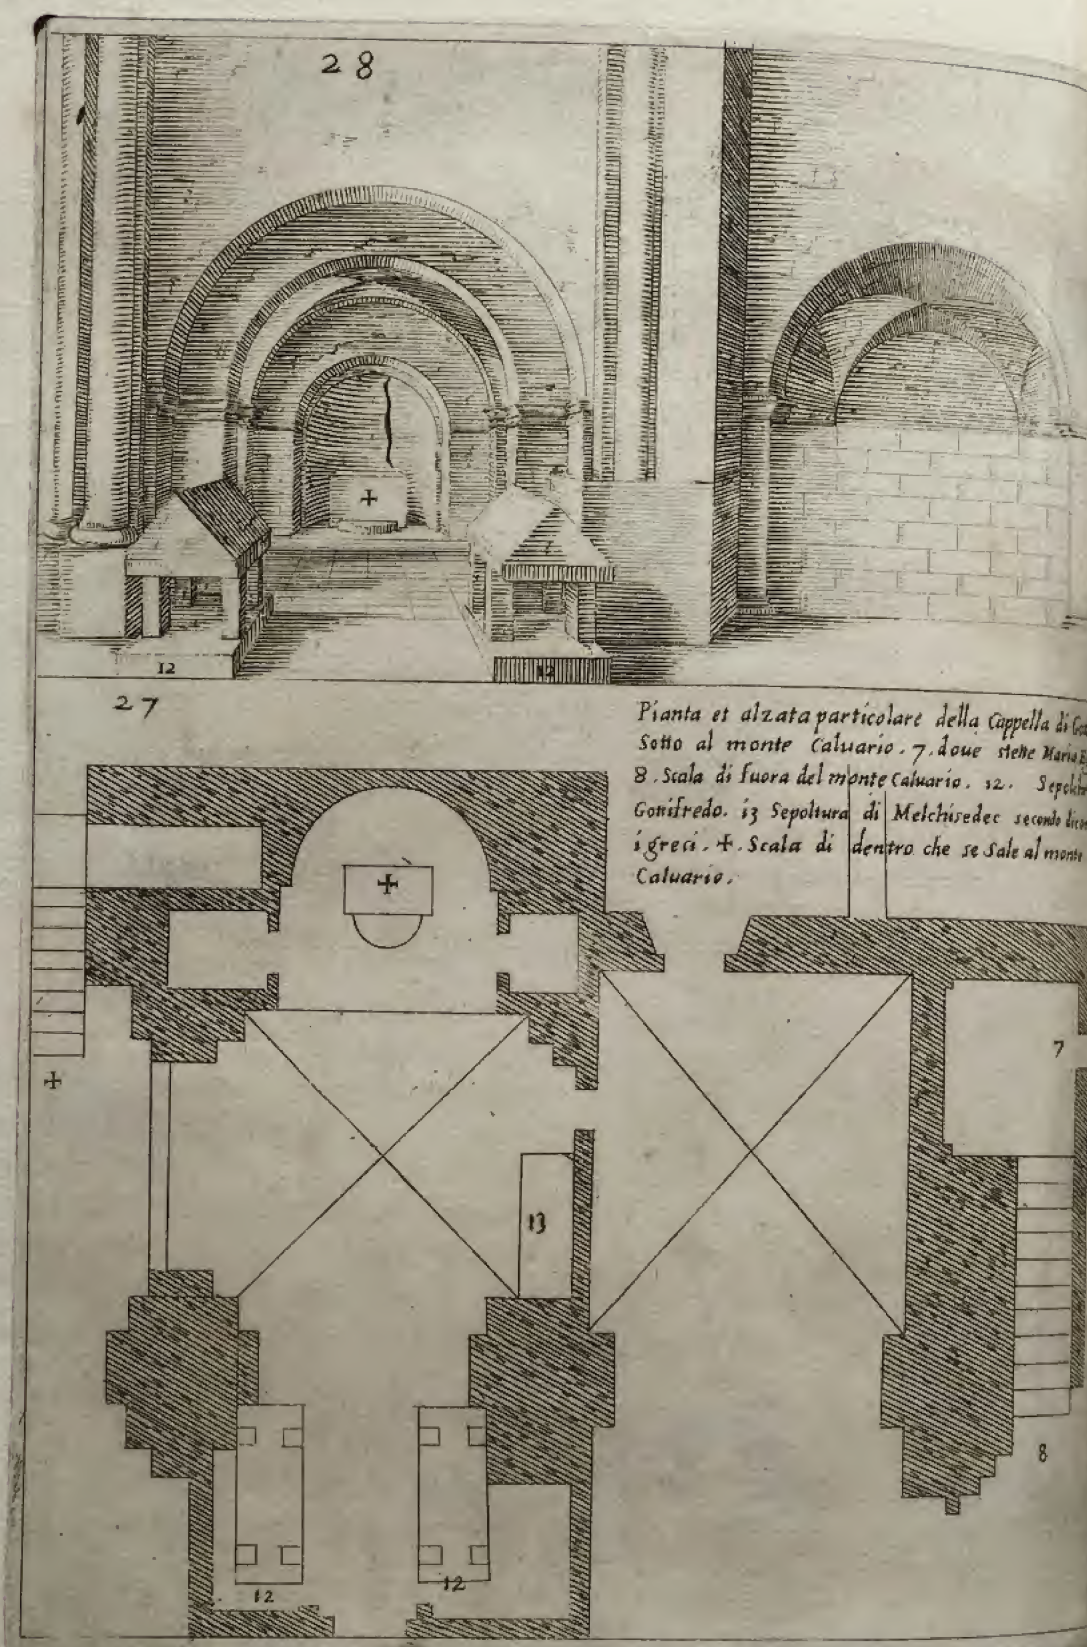 28
12
12
27
Pianta et alzata particolare della Cappella di
Sotto al monte Caluario. 7. doue stette Maria
8. Scala di fuora del monte Caluario. 12.
Gottifredo. i3 Sepoltura di Melchisedec secondo
i greci. ✢. Scala di dentro che se sale al monte
Caluario.
✢
✢
✢
7
13
8
12
12